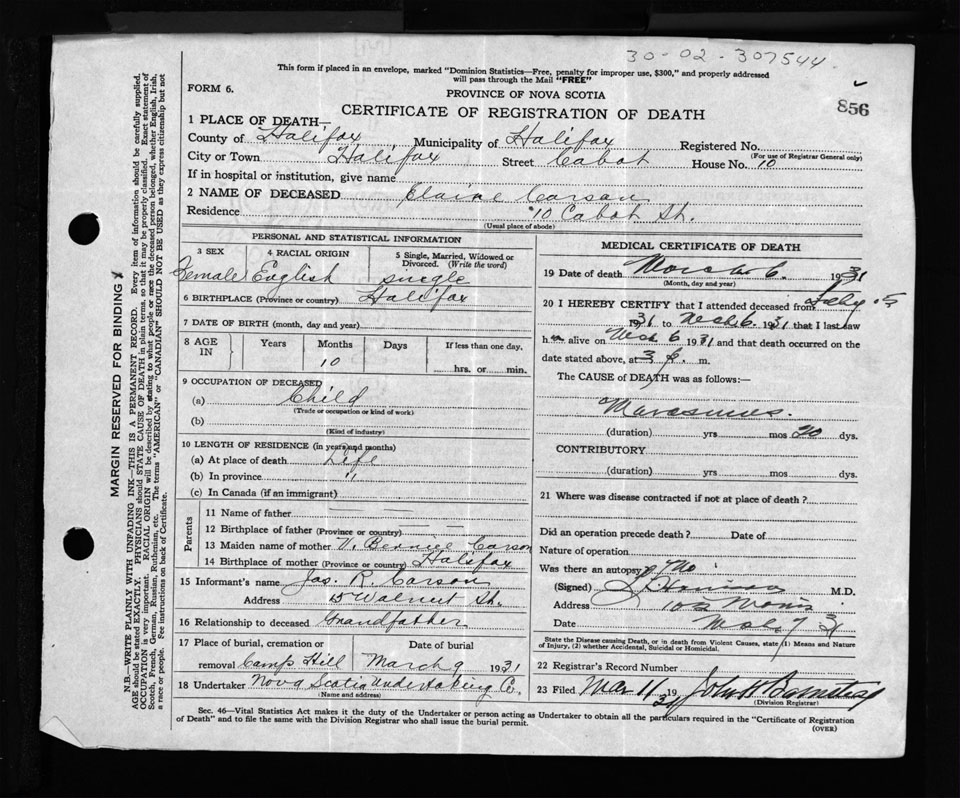 30-02-307544
This form if placed in an envelope, marked "Dominion Statistics—Free, penalty for improper use, $300," and properly addressed
will pass through the Mail "FREE"
FORM 6.
PROVINCE OF NOVA SCOTIA
856
CERTIFICATE OF REGISTRATION OF DEATH
1 PLACE OF DEATH—
County of Halifax Municipality of Halifax Registered No.
(For use of Registrar General only)
City or Town Halifax Street Cabot House No. 10
If in hospital or institution, give name
2 NAME OF DECEASED Elaine Carson
Residence 10 Cabot St.
(Usual place of abode)
PERSONAL AND STATISTICAL INFORMATION
3 SEX 4 RACIAL ORIGIN 5 Single, Married, Widowed or
Divorced. (Write the word)
Female English single
6 BIRTHPLACE (Province or country) Halifax
7 DATE OF BIRTH (month, day and year)
8 AGE IN Years Months Days If less than one day.
10
hrs. or min.
9 OCCUPATION OF DECEASED
(a) Child
(Trade or occupation or kind of work)
(b)
(Kind of industry)
10 LENGTH OF RESIDENCE (in years and months)
(a) At place of death Life
(b) In province "
(c) In Canada (if an immigrant)
Parents
11 Name of father — —
12 Birthplace of father (Province or country) — —
13 Maiden name of mother V. Bernice Carson
14 Birthplace of mother (Province or country) Halifax
15 Informant's name Jas. R. Carson
Address 15 Walnut St.
16 Relationship to deceased Grandfather
17 Place of burial, cremation or Date of burial
removal Camp Hill March 9 1931
18 Undertaker Nova Scotia Undertaking Co.
(Name and address)
MEDICAL CERTIFICATE OF DEATH
19 Date of death March 6. 1931
(Month, day and year)
20 I HEREBY CERTIFY that I attended deceased from Feby 15
1931 to Mch 6. 1931 that I last saw
h alive on Mch 6 1931 and that death occurred on the
date stated above, at 3 p. m.
The CAUSE of DEATH was as follows:—
Marasmus.
(duration) yrs mos 20 dys.
CONTRIBUTORY
(duration) yrs mos dys.
21 Where was disease contracted if not at place of death?
Did an operation precede death? Date of
Nature of operation
Was there an autopsy? No
(Signed) M.D.
Address 102 Morris
Date Mch 7 31
State the Disease causing Death, or in death from Violent Causes, state (1) Means and Nature
of Injury, (2) whether Accidental, Suicidal or Homicidal.
22 Registrar's Record Number
23 Filed Mar 11/31 19 John H Barnstead
(Division Registrar)
Sec. 46—Vital Statistics Act makes it the duty of the Undertaker or person acting as Undertaker to obtain all the particulars required in the "Certificate of Registration
of Death" and to file the same with the Division Registrar who shall issue the burial permit.
(OVER)
MARGIN RESERVED FOR BINDING
N.B.—WRITE PLAINLY WITH UNFADING INK—THIS IS A PERMANENT RECORD. Every item of information should be carefully supplied.
AGE should be stated EXACTLY. PHYSICIANS should STATE CAUSE OF DEATH in plain terms, so that it may be properly classified. Exact statement of
OCCUPATION is very important. RACIAL ORIGIN will be described by stating to what people or race the deceased person belonged, whether English, Irish,
Scotch, French, German, Russian, Ruthenian, etc. The terms "AMERICAN" or "CANADIAN" SHOULD NOT BE USED as they express citizenship but not
a race or people. See instructions on back of Certificate.